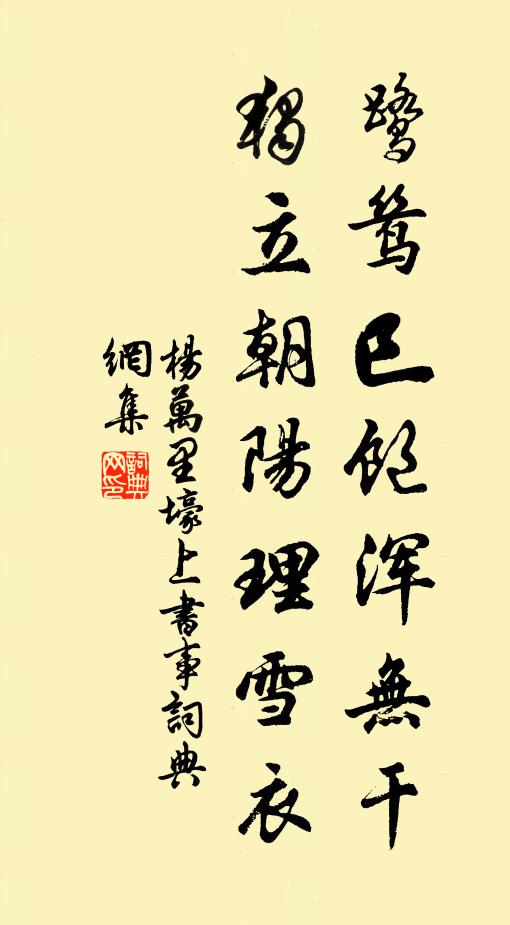 鷺鷥已飽渾無干
獨立朝陽理雪衣
楊萬里壕上書事詞典
網集
詞典
网印